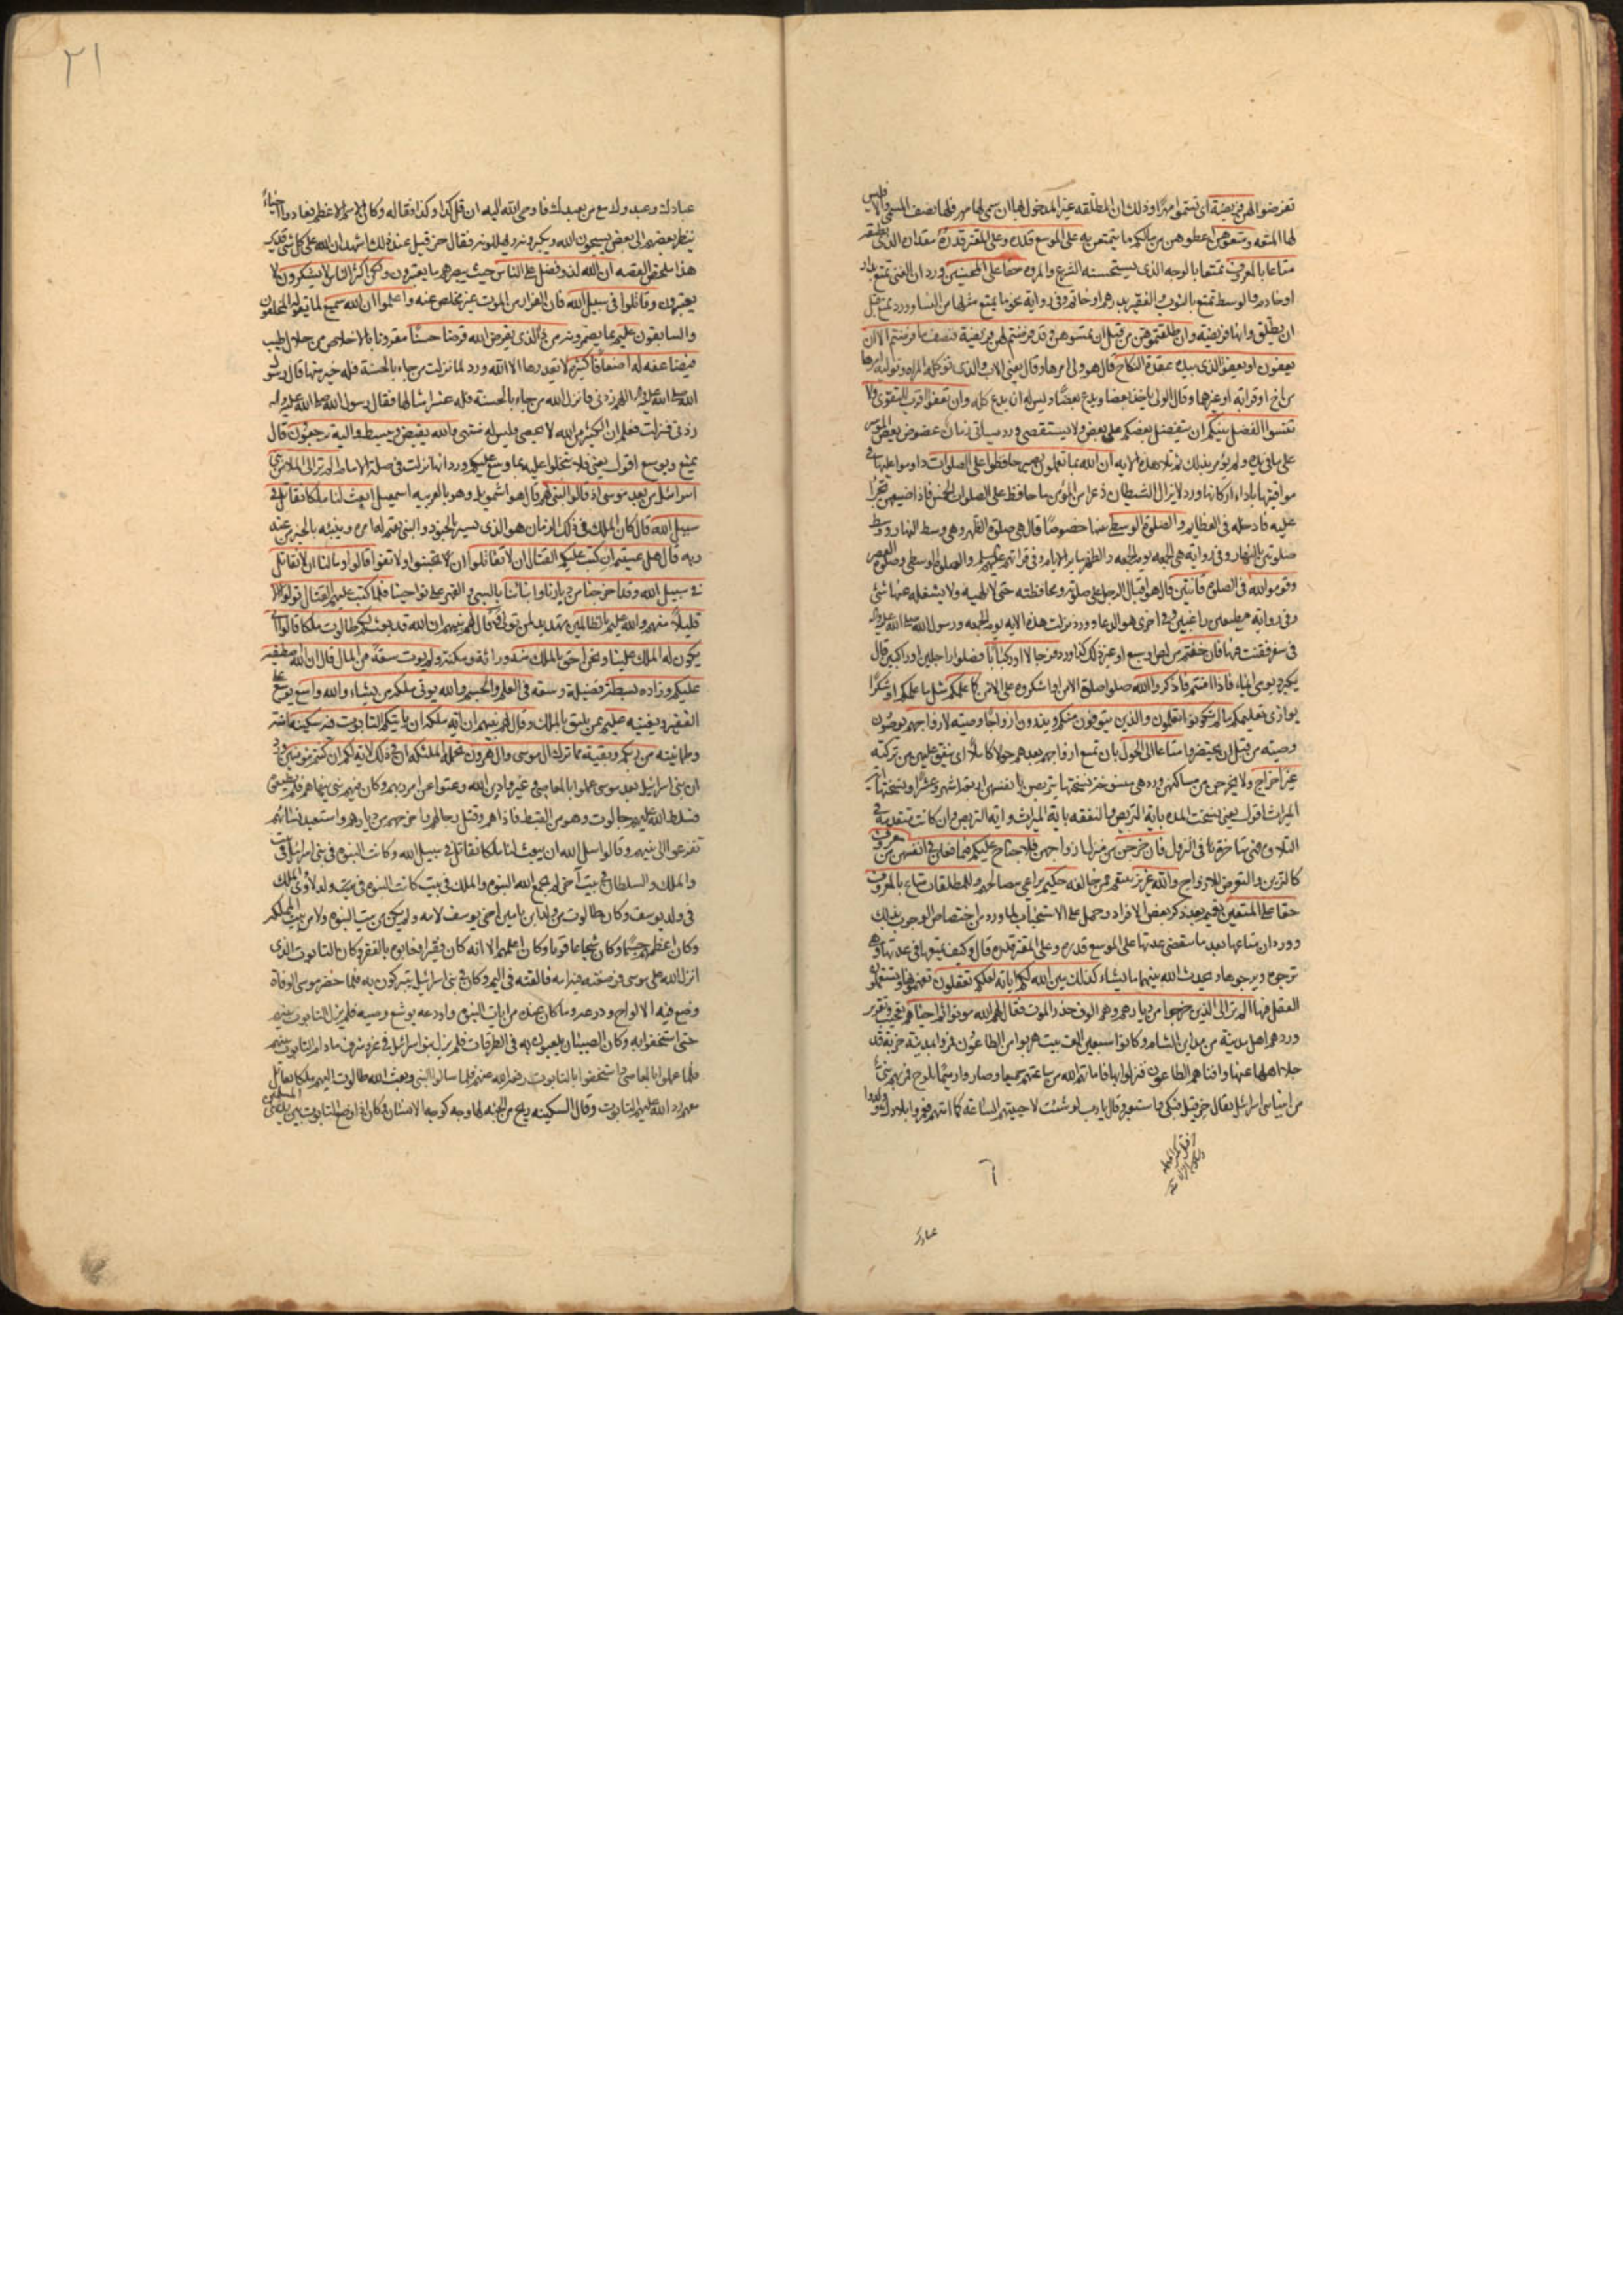 تفرضوا لهن فريضة اى تسموا مهرا وذلك ان المطلقه غير المدخول بها ان سمى لها مهر فلها نصف المسمى والا فليس
لها الا المتعه ومتعوهن اعطوهن من مالكم ما يتمتعن به على الموسع قدره وعلى المقتر قدره مقدار الذى يطيقه
متاعا بالمعروف تمتعا بالوجه الذى يستحسنه الشرع والمروه حقا على المحسنين ورد ان الغنى يمتع بدار
او خادم والوسط يمتع بالثوب والفقير بدرهم او خاتم وفى رواية نحو ما يمتع مثلها من النساء وورد يمتع قبل
ان يطلق وانها فريضة وان طلقتموهن من قبل ان تمسوهن وقد فرضتم لهن فريضة فنصف ما فرضتم الا ان
يعفون او يعفو الذى بيده عقدة النكاح قال هو ولى امرها وقال يعنى الاب والذى توكله المراه وتوليه امرها
من اخ او قرابة او غيرهما وقال الولى ياخذ بعضا ويدع بعضا وليس له ان يدع كله وان تعفوا اقرب للتقوى ولا
تنسوا الفضل بينكم ان يتفضل بعضكم على بعض ولا يستقصى ورد سياتى زمان عضوض يعض المؤمن
على ما فى يده ولم يؤمر بذلك ثم تلا هذه الايه ان الله بما تعملون بصير حافظوا على الصلوات داوموا عليها فى
مواقيتها باداء اركانها ورد لا يزال الشيطان ذعرا من المؤمن ما حافظ على الصلوات الخمس فاذا ضيعهن تجرا
عليه فادخله فى العظايم والصلوة الوسطى منها خصوصا قال هى صلوة الظهر وهى وسط النهار ووسط
صلوتين بالنهار وفى رواية هى الجمعه يوم الجمعه والظهر ساير الايام وفى قراءتهم عليهم السلم والصلوة الوسطى وصلوة العصر
وقوموا لله فى الصلوة قانتين قال هو اقبال الرجل على صلوته ومحافظته حتى لا يلهيه ولا يشغله عنها شئ
وفى رواية مطيعين راغبين وفى اخرى هو الدعا وورد نزلت هذه الايه يوم الجمعه ورسول الله صلى الله عليه واله
فى سفر فقنت فيها فان خفتم من لص او سبع او غير ذلك فرجالا او ركبانا فصلوا راجلين او راكبين قال
يكبر ويومى ايماء فاذا امنتم فاذكروا الله صلوا صلوة الامن او اشكروه على الامن كما علمكم مثل ما علمكم او شكرا
يوازى تعليمكم ما لم تكونوا تعلمون والذين يتوفون منكم ويذرون ازواجا وصيه لازواجهم يوصون
وصيته من قبل ان يحتضروا متاعا الى الحول بان تمتع ازواجهم بعدهم حولا كاملا اى ينفق عليهن من تركته
غير اخراج ولا يخرجن من مساكنهن ورد هى منسوخه نسختها يتربصن بانفسهن اربعة اشهر وعشرا ونسختها اية
الميراث اقول يعنى نسخت المده باية التربص والنفقه باية الميراث واية التربص وان كانت متقدمة فى
التلاوة فهى متاخره فى النزول فان خرجن من منزل ازواجهن فلا جناح عليكم فيما فعلن فى انفسهن من معروف
كالتزين والتعرض للازواج والله عزيز ينتقم ممن خالفه حكيم يراعى مصالحهم وللمطلقات متاع بالمعروف
حقا على المتقين تعميم بعد ذكر بعض الافراد وحمل على الاستحباب لما ورد من اختصاص الوجوب بتلك
وورد ان متاعها بعد ما تنقضى عدتها على الموسع قدره وعلى المقتر قدره قال وكيف يمتعها فى عدتها وهى
ترجوه ويرجوها ويحدث الله بينهما ما يشاء كذلك يبين الله لكم اياته لعلكم تعقلون تفهمونها وتستعملون
العقل فيها الم تر الى الذين خرجوا من ديارهم وهم الوف حذر الموت فقال لهم الله موتوا ثم احياهم تعجيب وتقرير
ورد هم اهل مدينة من مداين الشام وكانوا سبعين الف بيت هربوا من الطاعون فمروا بمدينة خربة قد
جلا اهلها عنها وافناهم الطاعون فنزلوا بها فاماتهم الله من ساعتهم جميعا وصاروا رميما يلوح فمر بهم نبى
من انبياء بنى اسرائيل يقال له حزقيل فبكى واستعبر وقال يا رب لو شئت لاحييتهم الساعة كما امتهم فعمروا بلادك وولدوا
عبادك
عبادك وعبدوك مع من يعبدك فاوحى الله اليه ان قل كذا وكذا فقاله وكان الاسم الاعظم فعادوا احياء
ينظر بعضهم الى بعض يسبحون الله ويكبرونه ويهللونه فقال حزقيل عند ذلك اشهد ان الله على كل شئ قدير
هذا ملخص القصه ان الله لذو فضل على الناس حيث يبصرهم ما يعتبرون ولكن اكثر الناس لا يشكرون لا
يعتبرون وقاتلوا فى سبيل الله فان الفرار من الموت غير مخلص عنه واعلموا ان الله سميع لما يقوله المخلفون
والسابقون عليم بما يضمرونه من ذا الذى يقرض الله قرضا حسنا مقرونا بالاخلاص من حلال طيب
فيضاعفه له اضعافا كثيرة لا يقدرها الا الله ورد لما نزلت من جاء بالحسنة فله خير منها قال رسول
الله صلى الله عليه واله اللهم زدنى فانزل الله من جاء بالحسنة فله عشر امثالها فقال رسول الله صلى الله عليه واله
زدنى فنزلت فعلم ان الكثير من الله لا يحصى وليس له منتهى والله يقبض ويبسط واليه ترجعون قال
يمنع ويوسع اقول يعنى فلا تبخلوا عليه بما وسع عليكم ورد انها نزلت فى صلة الامام الم تر الى الملا من بنى
اسرائيل من بعد موسى اذ قالوا لنبى لهم قال هو اشمويل وهو بالعربيه اسمعيل ابعث لنا ملكا نقاتل فى
سبيل الله قال كان الملك فى ذلك الزمان هو الذى يسير بالجنود والنبى يقيم له امره وينبئه بالخبر من عند
ربه قال هل عسيتم ان كتب عليكم القتال ان لا تقاتلوا ان لا تجيبوا ولا تفوا قالوا وما لنا ان لا نقاتل
فى سبيل الله وقد اخرجنا من ديارنا وابنائنا بالسبى والقهر على نواحينا فلما كتب عليهم القتال تولوا الا
قليلا منهم والله عليم بالظالمين تهديد لمن تولى وقال لهم نبيهم ان الله قد بعث لكم طالوت ملكا قالوا انى
يكون له الملك علينا ونحن احق بالملك منه وراثة ومكنة ولم يؤت سعة من المال قال ان الله اصطفيه
عليكم وزاده بسطة فضيلة وسعه فى العلم والجسم والله يؤتى ملكه من يشاء والله واسع يوسع على
الفقير ويغنيه عليم بمن يليق بالملك وقال لهم نبيهم ان اية ملكه ان ياتيكم التابوت فيه سكينه امنة
وطمانينه من ربكم وبقية مما ترك ال موسى وال هرون تحمله الملئكه ان فى ذلك لاية لكم ان كنتم مؤمنين ورد
ان بنى اسرائيل بعد موسى عملوا بالمعاصى وغيروا دين الله وعتوا عن امر ربهم وكان فيهم نبى ينهاهم فلم يطيعوه
فسلط الله عليهم جالوت وهو من القبط فاذاهم وقتل رجالهم واخرجهم من ديارهم واستعبد نساءهم
ففزعوا الى نبيهم وقالوا سل الله ان يبعث لنا ملكا نقاتل فى سبيل الله وكانت النبوه فى بنى اسرائيل فى بيت
والملك والسلطان فى بيت اخر لم يجمع الله النبوه والملك فى بيت كانت النبوه فى ولد لاوى والملك
فى ولد يوسف وكان طالوت من ولد ابن يامين اخى يوسف لامه ولم يكن من بيت النبوه ولا من بيت المملكه
وكان اعظمهم جسما وكان شجاعا قويا وكان اعلمهم الا انه كان فقيرا فعابوه بالفقر وكان التابوت الذى
انزل الله على موسى فوضعته فيه امه فالقته فى اليم وكان فى بنى اسرائيل يتبركون به فلما حضر موسى الوفاة
وضع فيه الالواح ودرعه وما كان عنده من ايات النبوه واودعه يوشع وصيه فلم يزل التابوت بينهم
حتى استخفوا به وكان الصبيان يلعبون به فى الطرقات فلم يزل بنو اسرائيل فى عز وشرف ما دام التابوت بينهم
فلما عملوا بالمعاصى واستخفوا بالتابوت رفعه الله عنهم فلما سالوا النبى وبعث الله طالوت اليهم ملكا يقاتل
معهم رد الله عليهم التابوت وقال السكينه ريح من الجنه لها وجه كوجه الانسان وكان اذا وضع التابوت بين يدى المسلمين